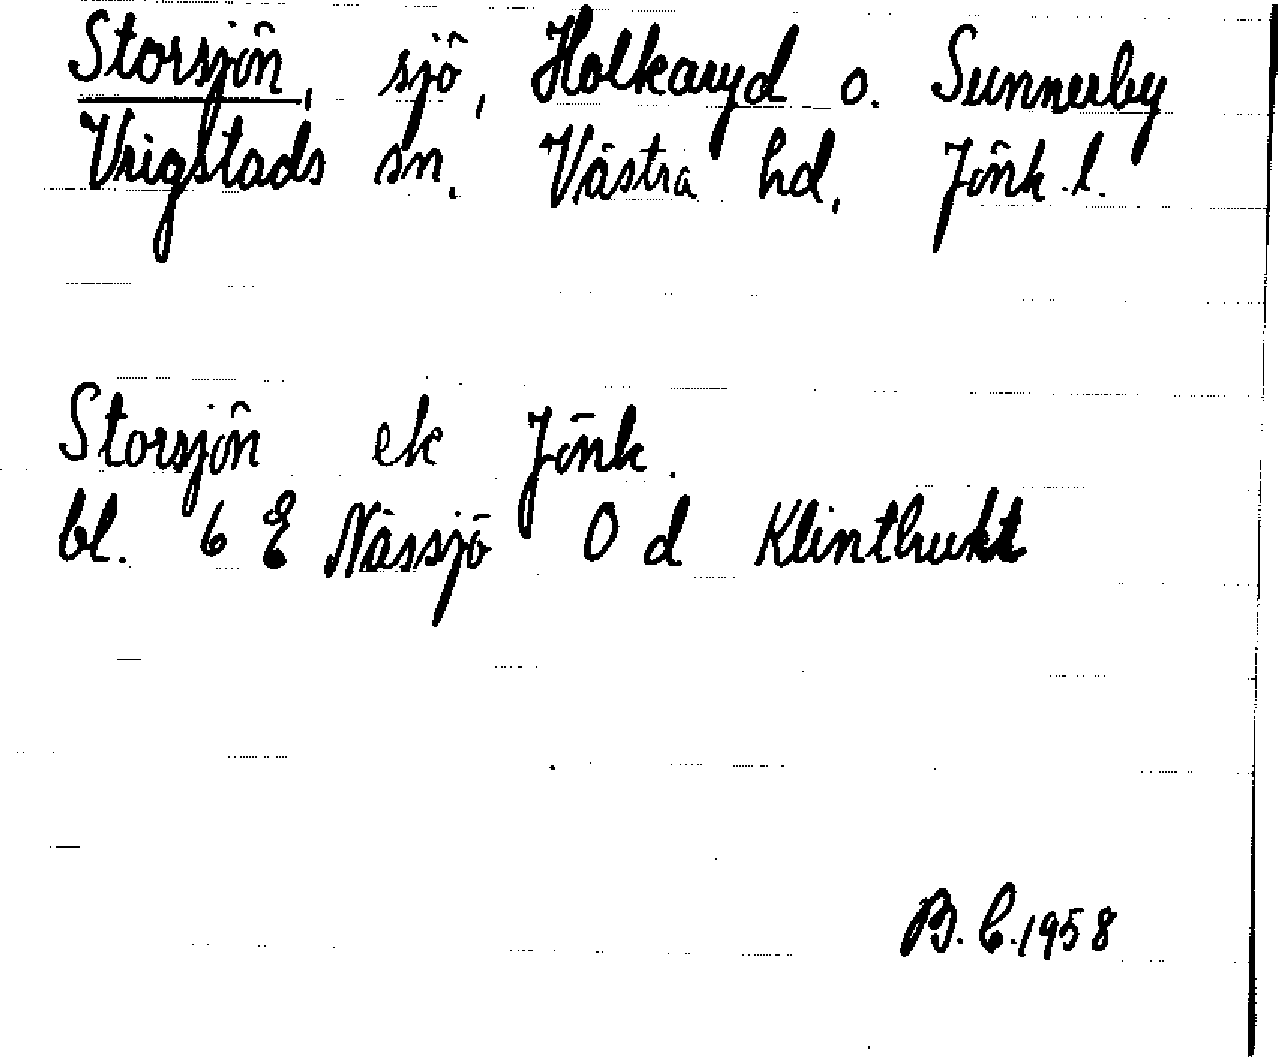 Storsjön, sjö, Holkaryd o. Sunnerby
Vrigstads sn. Västra hd. Jönk. l.
Storsjön ek Jönk.
bl. 6 E Nässjö 0 d
B. C. 1958